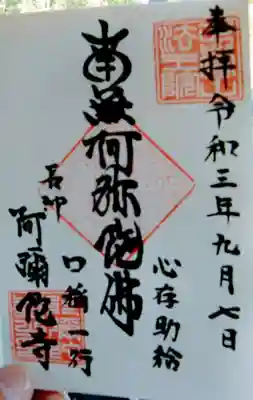 奉拝
令和三年九月七日
南無阿弥陀佛
心存助給
口称一行
阿彌陀寺